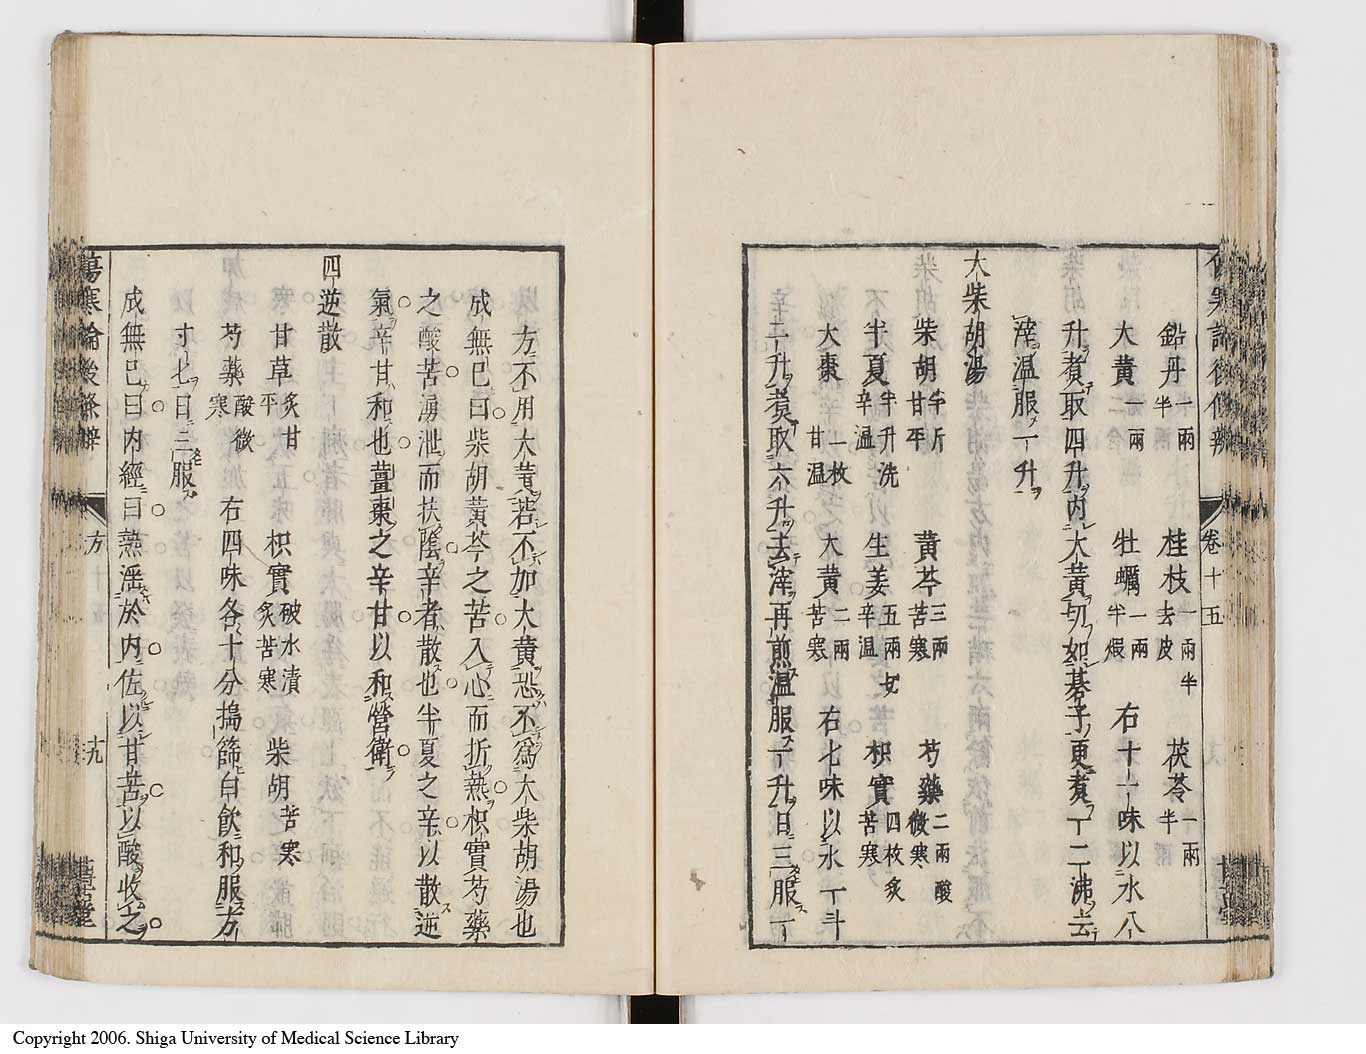 卷十五
鉛丹一兩半　桂枝一兩半去皮　茯苓一兩半
大黃二兩　牡蠣一兩半煨　右十一味以水八
升煮取四升内大黃切如碁子更煮一二沸去
滓溫服一升
大柴胡湯
柴胡半斤甘平　黃芩三兩苦寒　芍藥二兩酸微寒
半夏半升洗辛溫　生姜五兩切辛溫　枳實四枚炙苦寒
大棗一枚甘溫　大黃二兩苦寒　右七味以水一斗
二升煮取六升去滓再煎溫服一升日三服一
方不用大黃若不加大黃恐不為大柴胡湯也
成無已曰柴胡黃芩之苦入心而折熱枳實芍藥
之酸苦涌泄而扶陰辛者散也半夏之辛以散逆
氣辛甘和也薑棗之辛甘以和營衛
四逆散
甘草炙甘平　枳實破水漬炙苦寒　柴胡苦寒
芍藥酸微寒　右四味各十分搗篩白飲和服方
寸匕日三服
成無已曰内經曰熱淫於内佐以甘苦以酸收之
傷寒論後條辨
方
十九
Copyright 2006. Shiga University of Medical Science Library